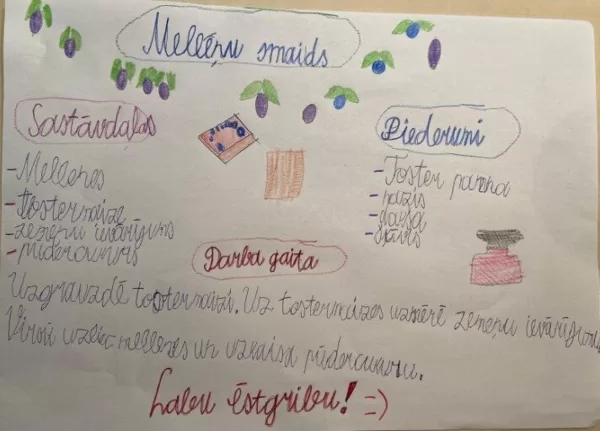 Melleņu smaids
Sastāvdaļas
-Mellenes
-tostermaize
-zemeņu ievārījums
-pūdercukurs
Piederumi
-Toster panna
-nazis
-dakša
-šķīvis
Darba gaita
Uzgrauzdē tostermaizi. Uz tostermaizes uzsmērē zemeņu ievārījumu.
Virsū uzliec mellenes un uzkaisa pūdercukuru.
Labu ēstgribu! =)